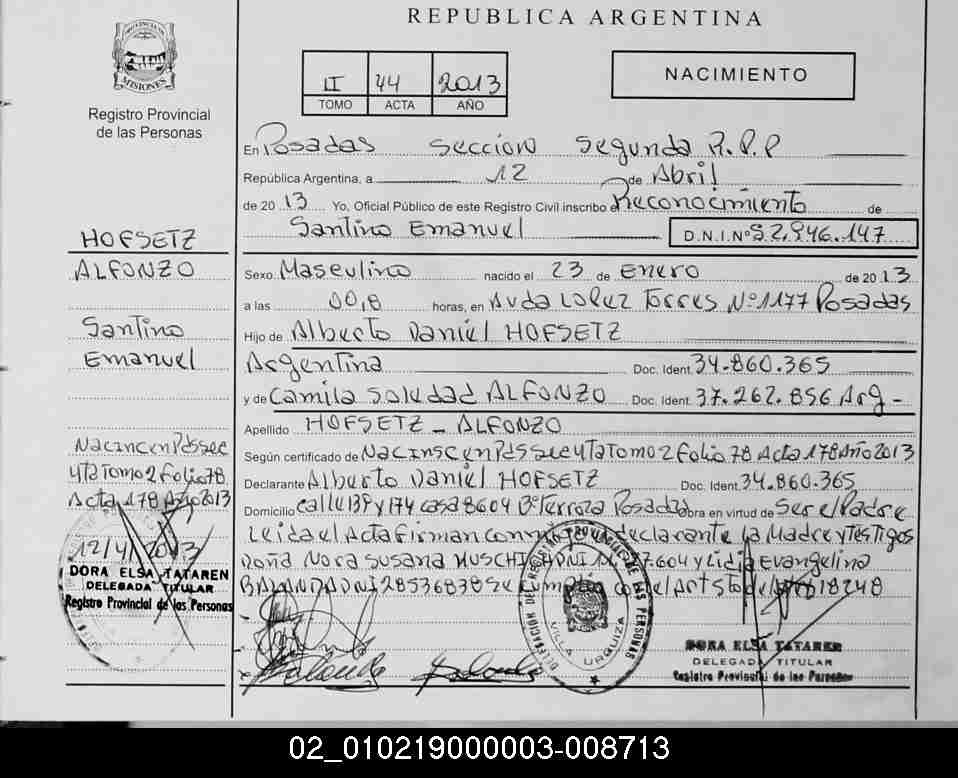 REPUBLICA ARGENTINA
PROVINCIA DE
MISIONES
Registro Provincial
de las Personas
II 44 2013
TOMO ACTA AÑO
NACIMIENTO
En Posadas Seccion Segunda R.P.P
República Argentina, a 12 de Abril
de 2013 Yo, Oficial Público de este Registro Civil inscribo el Reconocimiento de
Santino Emanuel D.N.I.Nº 52.946.147
HOFSETZ
ALFONZO
Santino
Emanuel
Sexo Masculino nacido el 23 de Enero de 2013
a las horas, en Avda Lopez Torres Nº 1177 Posadas
Hijo de Alberto Daniel HOFSETZ
Argentina Doc. Ident. 34.860.365
y de Camila Soledad ALFONZO Doc. Ident. 37.262.856 Arg -
Apellido HOFSETZ - ALFONZO
Según certificado de Nac Insc en Pdas Sec 4ta Tomo 2 Folio 78 Acta 178 Año 2013
Declarante Alberto Daniel HOFSETZ Doc. Ident. 34.860.365
Domicilio calle 139 y 174 casa 8604 Posadas obra en virtud de Ser el Padre
Leida el Acta firman declarante La Madre y Testigos
Doña Nora Susana 7604 y Lidia Evangelina
DNI 28536838 Art 18248
Nac Insc en Pdas Sec
4ta Tomo 2 Folio 78
Acta 178 Año 2013
12/4/2013
DORA ELSA TATAREN
DELEGADA TITULAR
Registro Provincial de las Personas
DELEGACION DEL REGISTRO PROVINCIAL DE LAS PERSONAS
VILLA URQUIZA
DORA ELSA TATAREN
DELEGADA TITULAR
Registro Provincial de las Personas
02_010219000003-008713